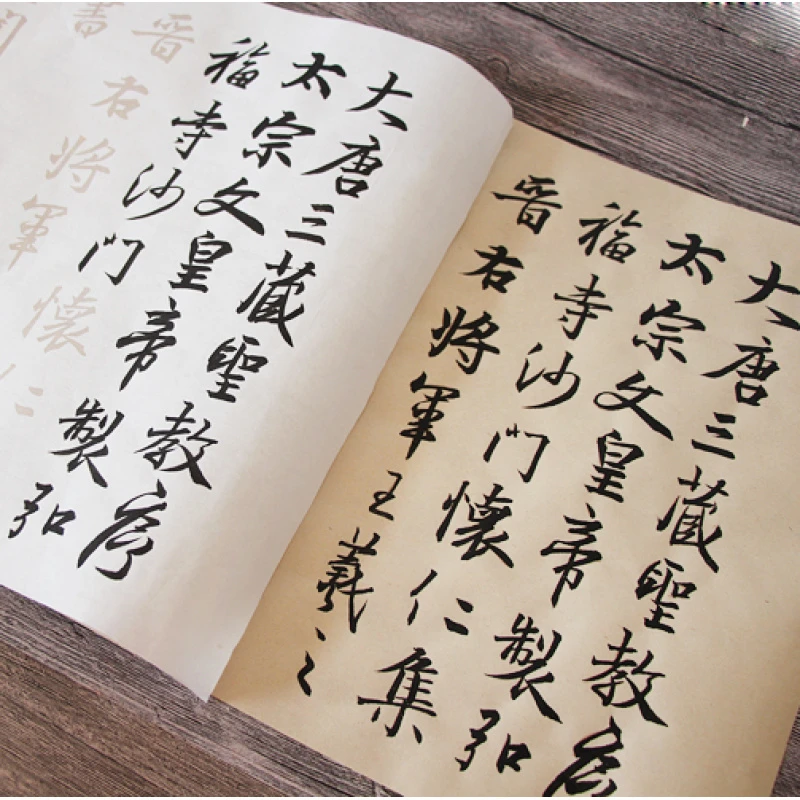 大唐三藏聖教序
太宗文皇帝製弘
福寺沙門懷仁集
晉右將軍王羲之
大唐三藏聖教序
太宗文皇帝製弘
福寺沙門懷仁
晉右將軍
書